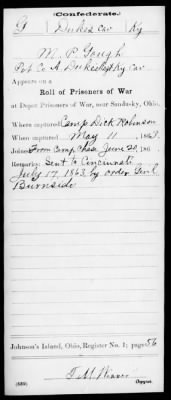 (Confederate.)
G | Dukes Cav | Ky
M. P. Gough
Pvt Co. A. Dukes Regt Ky Cav
Appears on a
Roll of Prisoners of War
at Depot Prisoners of War, near Sandusky, Ohio.
Where captured Camp Dick Robinson
When captured May 11, 1863.
Joined From Camp Chase June 20, 186
Remarks: Sent to Cincinnati
July 17, 1863, by order Genl
Burnside
Johnson's Island, Ohio, Register No. 1; page 56
(639)
Copyist.